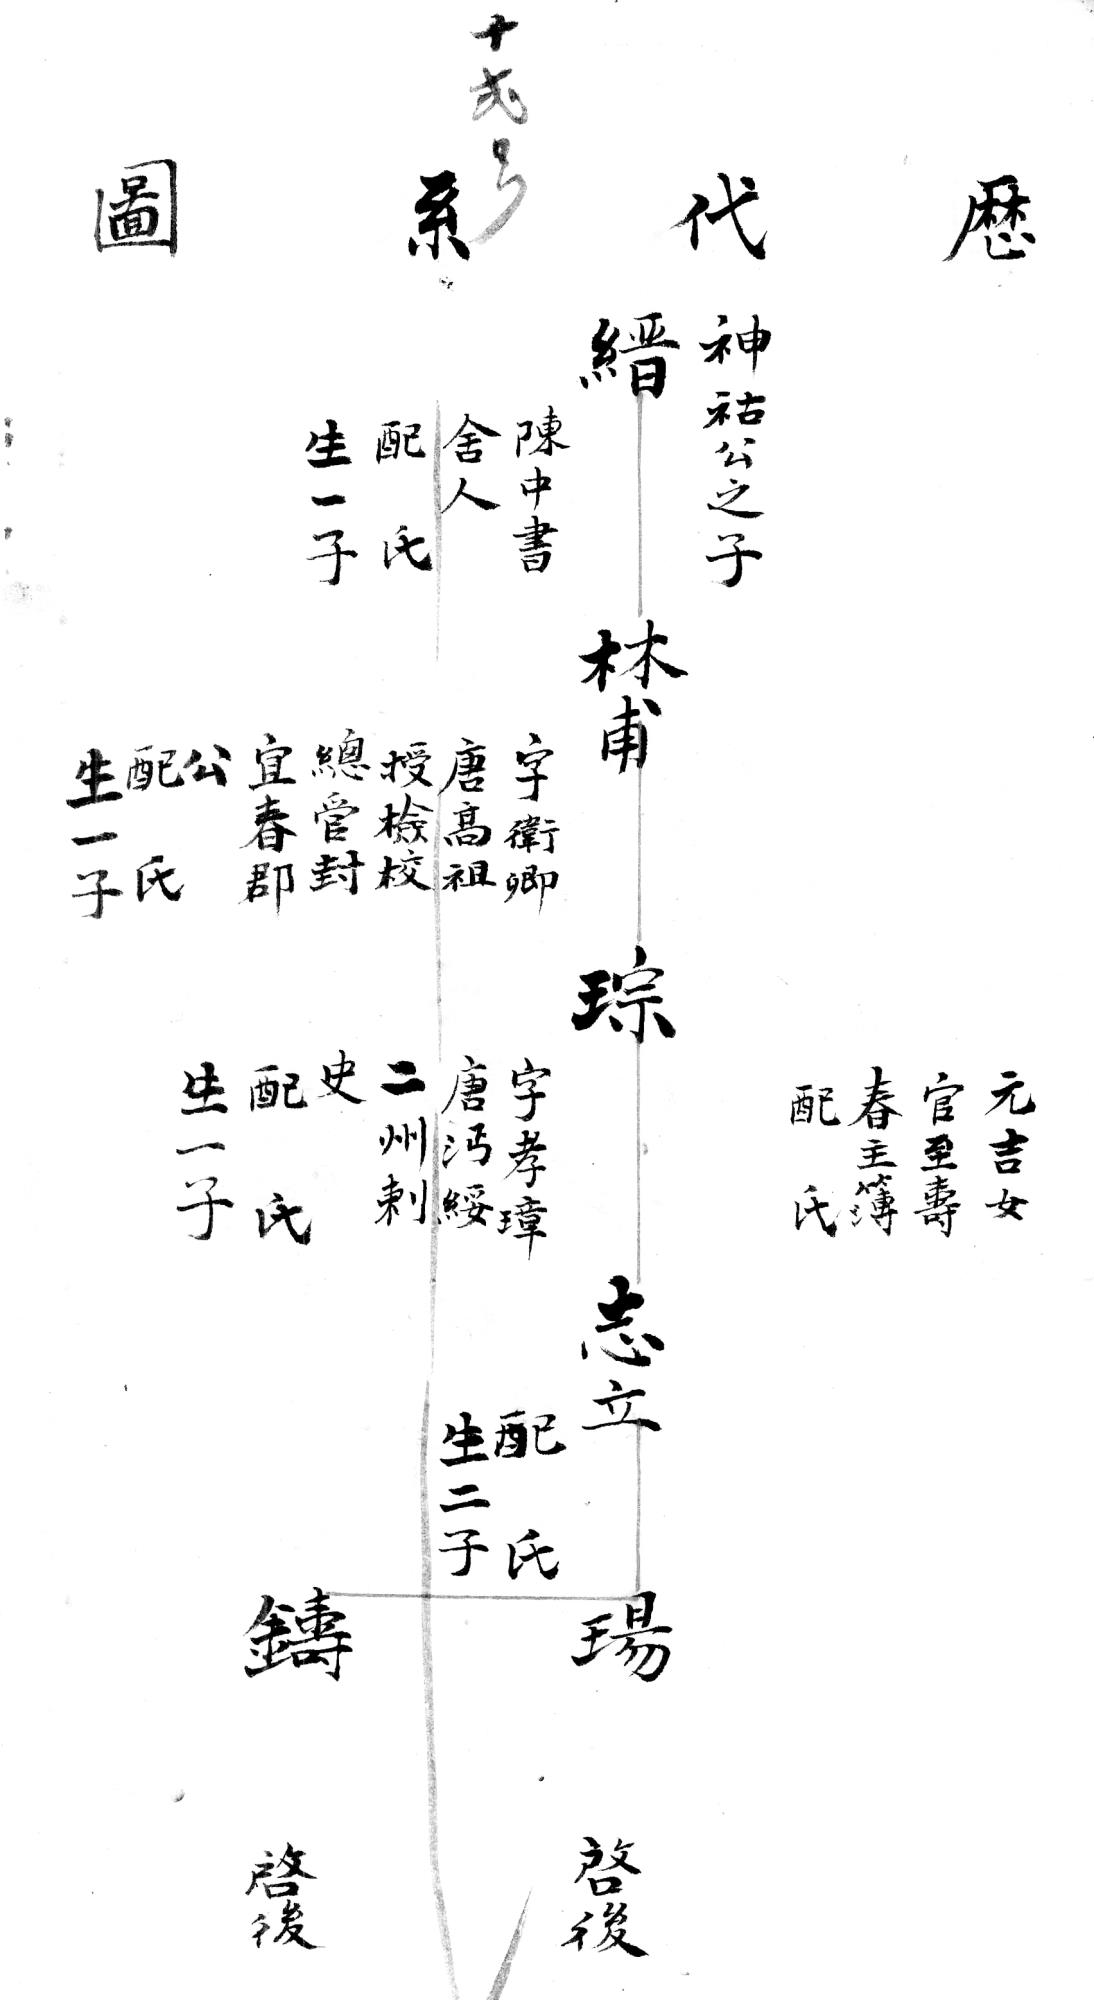 十弎号
歷代系圖
神祜公之子
縉
陳中書
舍人
配 氏
生一子
林甫
字衛卿
唐高祖
授檢校
總管封
宜春郡
公
配 氏
生一子
元吉女
官至壽
春主簿
配 氏
琮
字孝璋
唐沔綏
二州刺
史
配 氏
生一子
志立
配 氏
生二子
瑒
鑄
啓後
啓後